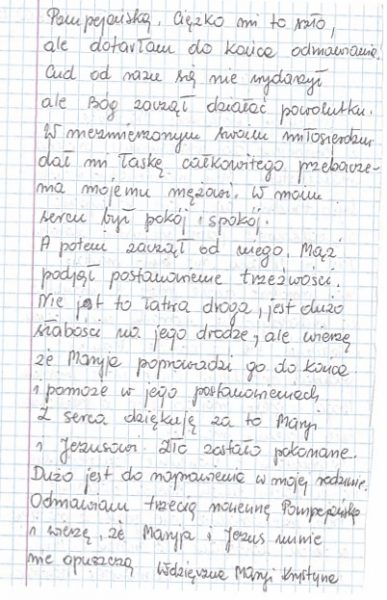 Pompejańską. Ciężko mi to szło,
ale dotarłam do końca odmawiania.
Cud od razu się nie wydarzył
ale Bóg zaczął działać powolutku.
W niezmierzonym swoim miłosierdziu
dał mi łaskę całkowitego przebacze-
nia mojemu mężowi. W moim
sercu był pokój i spokój.
A potem zaczął od niego. Mąż
podjął postanowienie trzeźwości.
Nie jest to łatwa droga, jest dużo
słabości na jego drodze, ale wierzę
że Maryja poprowadzi go do końca
i pomoże w jego postanowieniach
Z serca dziękuję za to Maryi
i Jezusowi. Zło zostało pokonane.
Dużo jest do naprawienia w mojej rodzinie.
Odmawiam trzecią nowennę Pompejańską
i wierzę, że Maryja i Jezus mnie
nie opuszczą Wdzięczna Maryi Krystyna